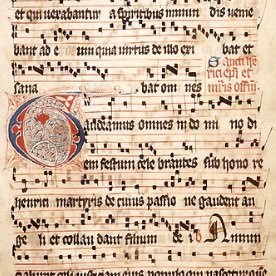 et qui uexabantur a spiritibus inmun dis uenie
bant ad e um quia uirtus de illo exi bat et
sana bat om nes
Sancti hen
rici epi et
Gaudeamus omnes in do mi no di
em festum cele brantes sub hono re
henrici martyris de cuius passio ne gaudent an
ge li et collau dant filium de i Annun